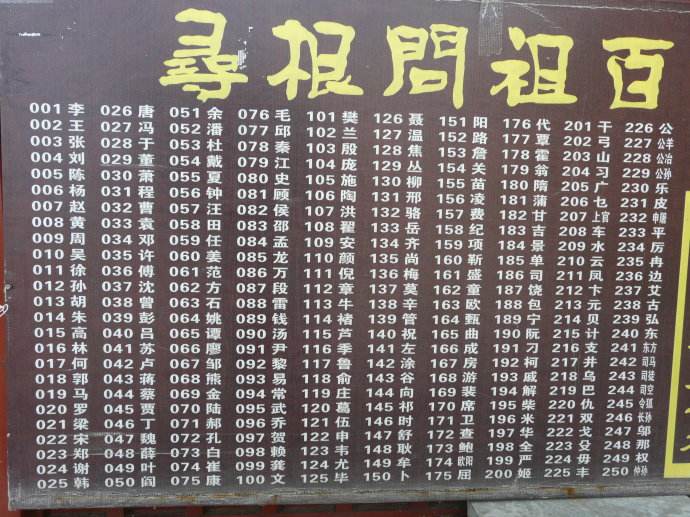 尋根問祖百
001 李 026 唐 051 余 076 毛 101 樊 126 聂 151 阳 176 代 201 干 226 公
002 王 027 冯 052 潘 077 邱 102 兰 127 温 152 路 177 覃 202 弓 227 公羊
003 张 028 于 053 杜 078 秦 103 殷 128 焦 153 詹 178 霍 203 山 228 公冶
004 刘 029 董 054 戴 079 江 104 庞 129 丛 154 关 179 翁 204 刁 229 公孙
005 陈 030 萧 055 夏 080 史 105 施 130 柳 155 苗 180 隋 205 广 230 乐
006 杨 031 程 056 钟 081 顾 106 陶 131 邢 156 凌 181 蒲 206 乜 231 皮
007 赵 032 曹 057 汪 082 侯 107 洪 132 骆 157 费 182 甘 207 上官 232 申屠
008 黄 033 袁 058 田 083 邵 108 翟 133 岳 158 纪 183 吉 208 车 233 平
009 周 034 邓 059 任 084 孟 109 安 134 齐 159 项 184 景 209 水 234 厉
010 吴 035 许 060 姜 085 龙 110 颜 135 尚 160 靳 185 单 210 云 235 冉
011 徐 036 傅 061 范 086 万 111 倪 136 梅 161 盛 186 司 211 凤 236 边
012 孙 037 沈 062 方 087 段 112 章 137 莫 162 童 187 饶 212 卞 237 艾
013 胡 038 曾 063 石 088 雷 113 牛 138 辛 163 欧 188 包 213 元 238 古
014 朱 039 彭 064 姚 089 钱 114 褚 139 管 164 甄 189 宁 214 贝 239 弘
015 高 040 吕 065 谭 090 汤 115 芦 140 祝 165 曲 190 阮 215 计 240 东
016 林 041 苏 066 廖 091 尹 116 季 141 左 166 成 191 刀 216 支 241 东方
017 何 042 卢 067 邹 092 黎 117 鲁 142 涂 167 房 192 柯 217 井 242 司马
018 郭 043 蒋 068 熊 093 易 118 俞 143 谷 168 游 193 戚 218 乌 243 司徒
019 马 044 蔡 069 金 094 常 119 庄 144 向 169 裴 194 解 219 巴 244 司空
020 罗 045 贾 070 陆 095 武 120 葛 145 祁 170 席 195 柴 220 仇 245 令狐
021 梁 046 丁 071 郝 096 乔 121 伍 146 时 171 卫 196 米 221 双 246 长孙
022 宋 047 魏 072 孔 097 贺 122 申 147 舒 172 查 197 华 222 戈 247 邬
023 郑 048 薛 073 白 098 赖 123 韦 148 耿 173 鲍 198 全 223 殳 248 那
024 谢 049 叶 074 崔 099 龚 124 尤 149 牟 174 欧阳 199 严 224 毋 249 权
025 韩 050 阎 075 康 100 文 125 毕 150 卜 175 屈 200 姬 225 丰 250 仲孙